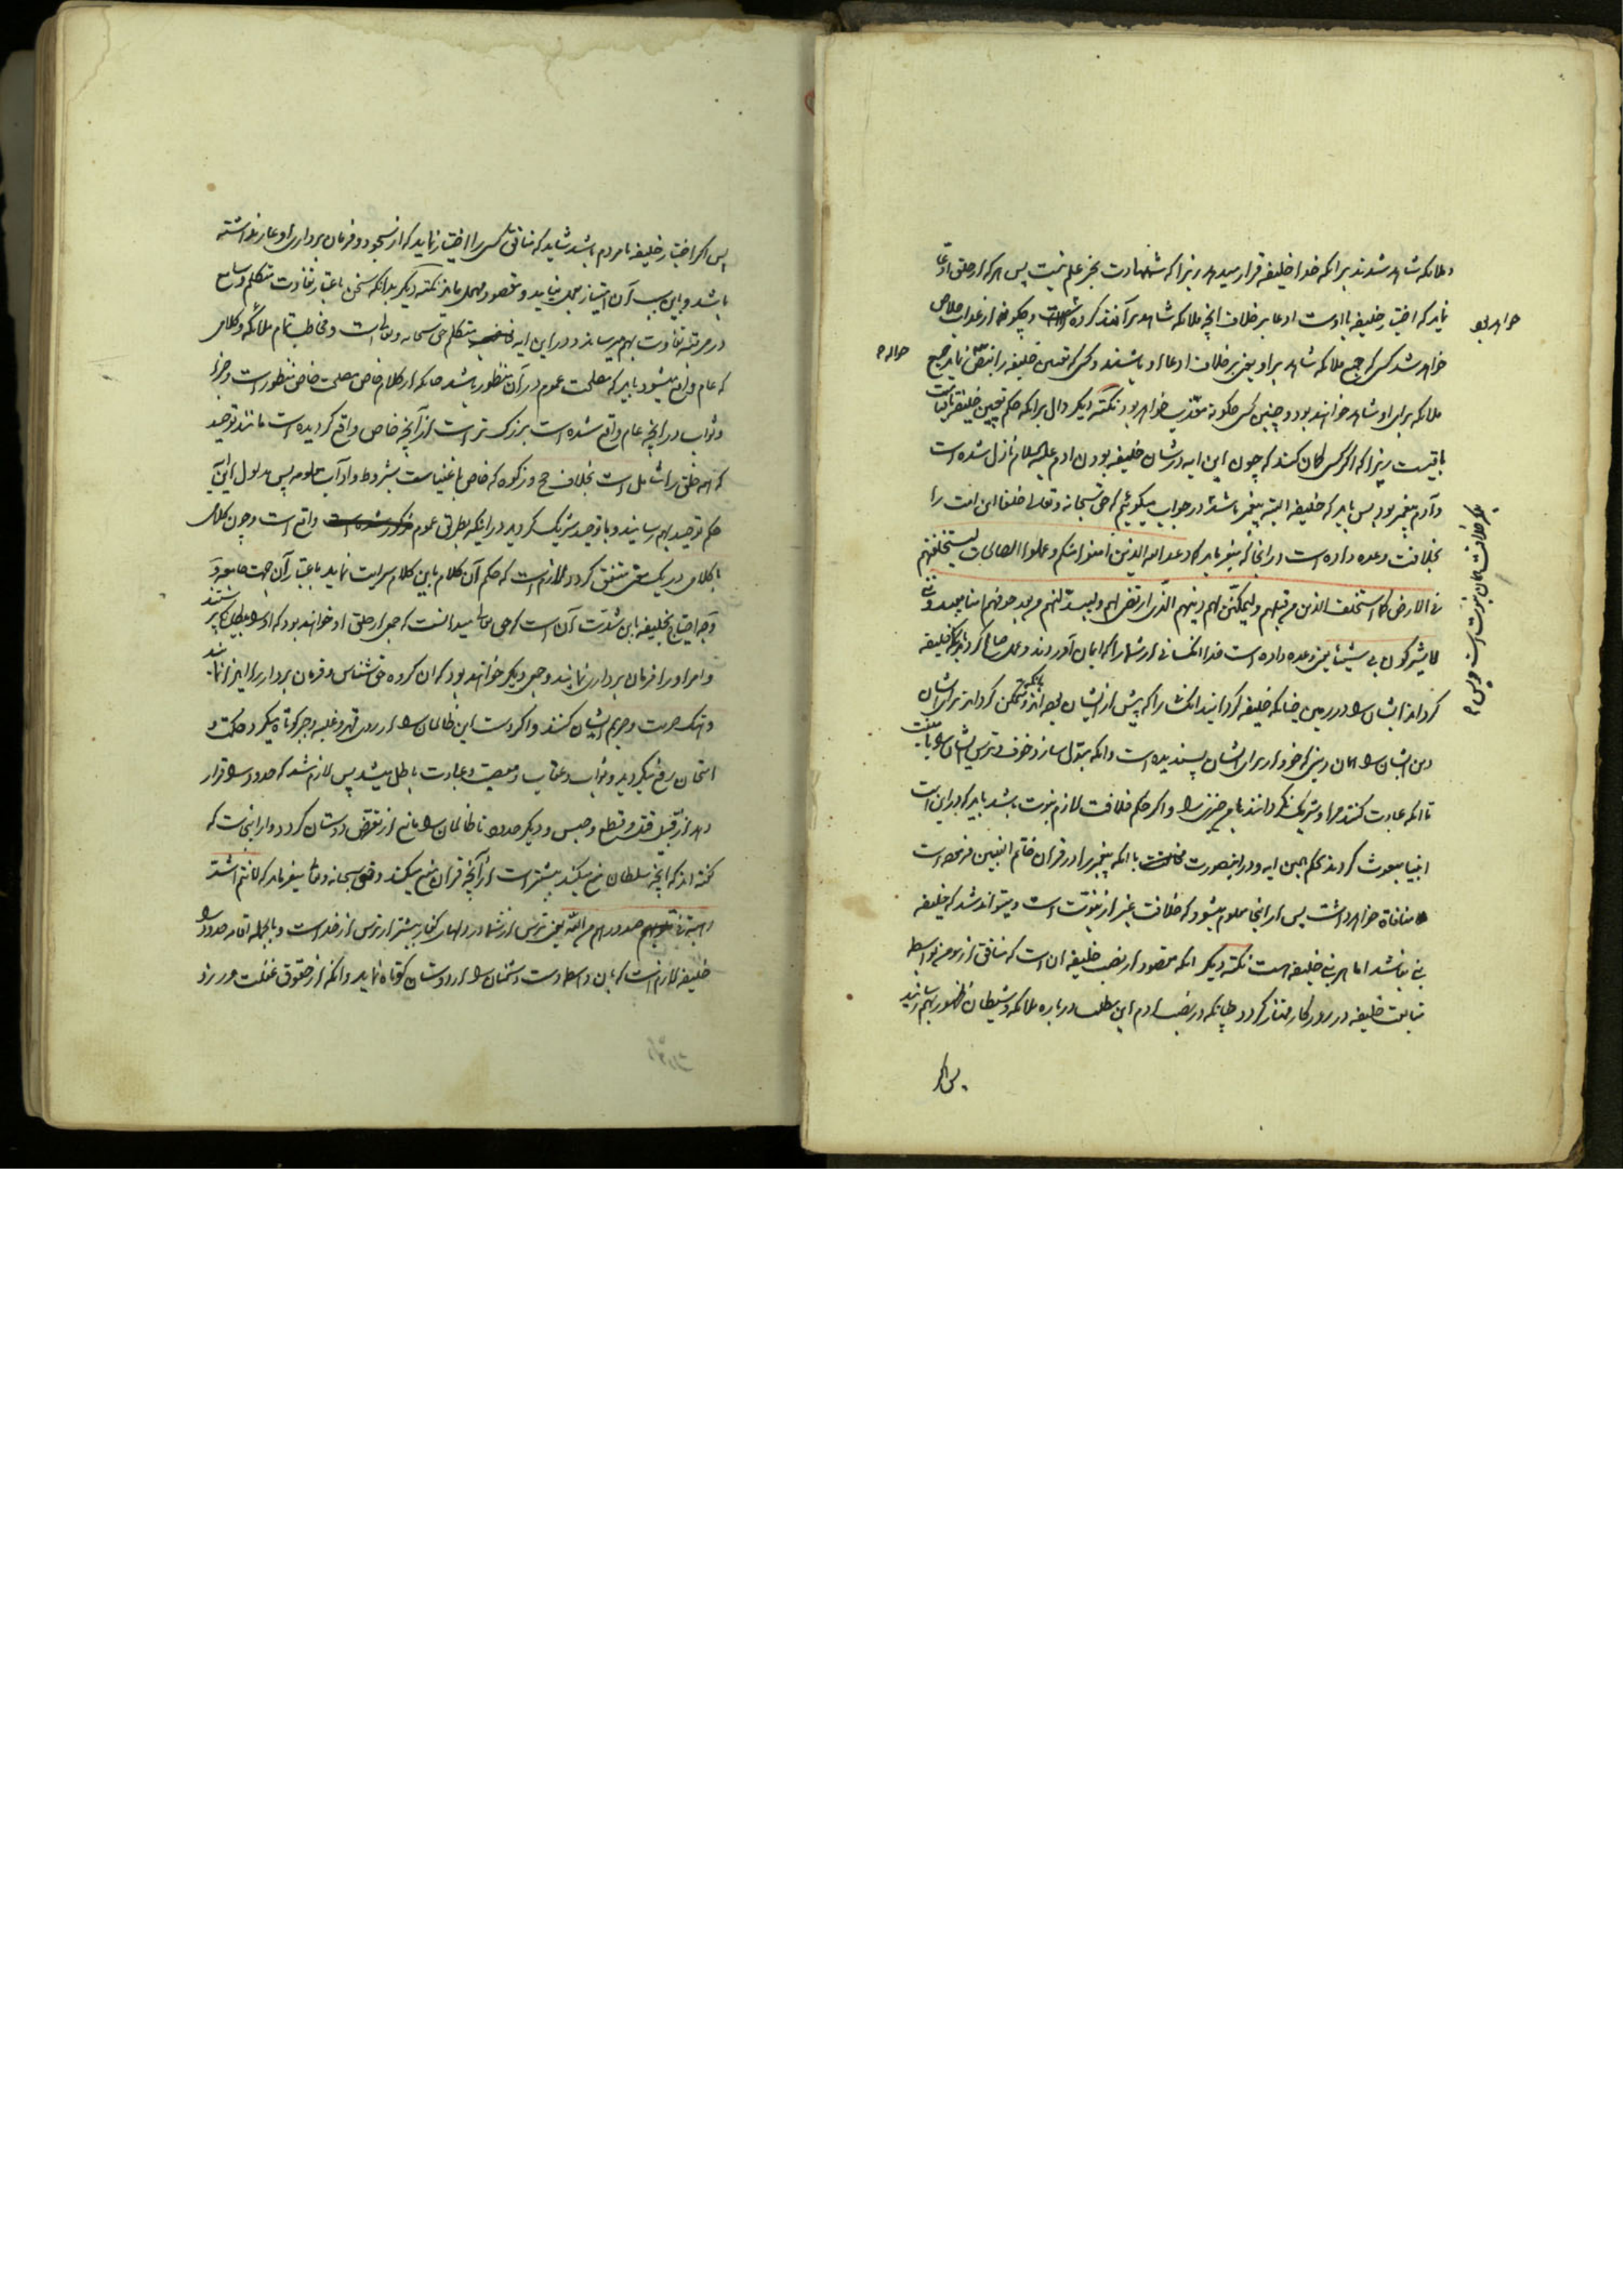 و ملائکه شاهد شدند برانکه خدا خلیفه قرار میدهد زیرا که شهادت بجز علم نیست پس هر که از خلق ادعا
نماید که اختیار خلیفه با اوست ادعا بر خلاف انچه ملائکه شاهد برآنند کرده است و چگونه از عذاب خلاص
خواهد بود
خواهد شد کسی که جمیع ملائکه شاهد بر او یعنی بر خلاف ادعاء او باشند و کسی که تعیین خلیفه را نماید جمیع
ملائکه برای او شاهد خواهند بود و چنین کسی چگونه معذب خواهد بود نکته دیگر دال برانکه حکم تعیین خلیفه تا قیامت
باقیست زیرا که اگر کسی گمان کند که چون این ایه در شان خلیفه بودن ادم علیه السلام نازل شده است
و آدم پیغمبر بود پس باید که خلیفه البته پیغمبر باشد در جواب میگوئیم که حق سبحانه و تعالی خلفا این امت را
بخلافت وعده داده است در انجا که میفرماید که وعد الله الذین امنوا منکم و عملوا الصالحات لیستخلفنهم
فی الارض کما استخلف الذین من قبلهم و لیمکنن لهم دینهم الذی ارتضی لهم و لیبدلنهم من بعد خوفهم امنا یعبدوننی
لا یشرکون بی شیئا یعنی وعده داده است خدا انکسانی از شما را که ایمان آوردند و عمل صالح کردند بانکه خلیفه
گرداند ایشان را در زمین چنانکه خلیفه گردانید انکسانرا که پیش از ایشان بودند و بانکه متمکن گرداند برای ایشان
دین ایشان را همان دینی که خود از برای ایشان پسندیده است و انکه مبدل سازد خوف و ترس ایشان را بامنیت
تا انکه عبادت کنند مرا و شریک نگردانند بامن چیزی را و اگر حکم خلافت لازم نبوت باشد باید که در این امت
انبیا مبعوث گردند بحکم همین ایه و در اینصورت با انکه پیغمبر را در قران خاتم النبیین فرموده است
منافاة خواهد داشت پس از اینجا معلوم میشود که خلافت غیر از نبوت است و میتواند شد که خلیفه
نبی نباشد اما هر نبی خلیفه هست نکته دیگر انکه مقصود از نصب خلیفه ان است که منافق از مومن بواسطه
متابعت خلیفه در روزگار ممتاز گردد چنانکه در نصب ادم این مطلب در باره ملائکه و شیطان ظهور بهم رسانید
پس اگر
پس اگر اختیار خلیفه با مردم باشد شاید که منافق کسی را اختیار نماید که از سجود و فرمان برداری او عار نداشته
باشد و باین سبب آن امتیاز بعمل نیاید و مقصود مهمل ماند نکته دیگر بدانکه سخن باعتبار تفاوت متکلم و سامع
در مرتبه تفاوت بهم میرساند و در این ایه متکلم حق سبحانه و تعالی است و مخاطب تمام ملائکه و کلامی
که عام واقع میشود باید که مصلحت عموم در آن منظور باشد چنانکه از کلام خاص مصلحت خاص منظور است و جزا
و ثواب در انچه عام واقع شده است بزرگتر است از آنچه خاص واقع گردیده است مانند توحید
که همه خلق را شامل است بخلاف حج و زکوة که خاص باغنیاست بشروط و آداب معلومه پس مدلول این آیه
حکم توحید بهم رسانید و با توحید شریک گردید در اینکه بطریق عموم واقع است و چون کلامی
با کلامی در یک معنی متفق گردد لازم است که حکم آن کلام باین کلام سرایت نماید باعتبار آن جهت جامعه و
وجه احتیاج بخلیفه باین شدت آن است که حق تعالی میدانست که جمعی از خلق او خواهند بود که او را بیگانگی پرستند
و امر او را فرمان برداری نمایند و جمعی دیگر خواهند بود که ان گروه حق شناس و فرمان بردار را ایذا نمایند
و هتک حرمت و حریم ایشان کنند و اگر دست این ظالمان را از روی قهر و غلبه و جبر کوتاه میکرد حکمت و
امتحان رفع میگردید و ثواب و عقاب و معصیت و عبادت باطل میشد پس لازم شد که حدود را قرار
دهد از قبیل قتل و قطع و حبس و دیگر حدود تا ظالمان را مانع از تعرض دوستان گردد و از اینجاست که
گفته اند که انچه سلطان منع میکند بیشتر است از آنچه قران منع میکند و حق سبحانه و تعالی میفرماید که لانتم اشد
رهبة فی صدورهم من الله یعنی ترس از شما در دلهای کفار بیشتر از ترس از خدا است و بالجمله اقامه حدود را
خلیفه لازم است که بان واسطه دست دشمنان را از دوستان کوتاه نماید و انکه از حقوق غفلت ورزد